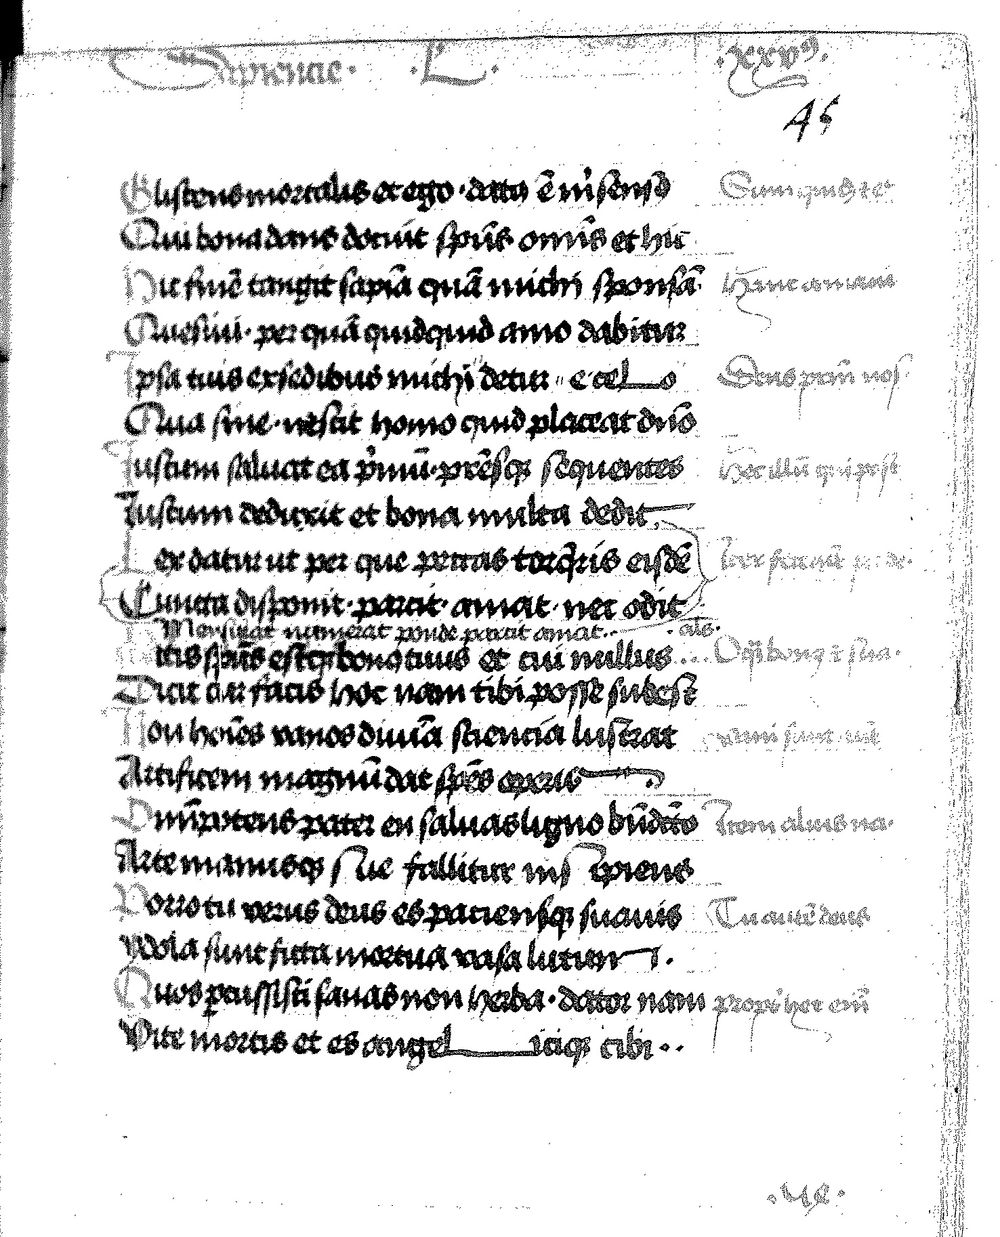 Sapiencie . L . .xxv9.
45
Glistens mortalis et ego · dat9 ē m̄ sens9 Sum quid et
Qui bona dans docuit sp̄us omīs et hic
Hic finē tangit sapiā quā michi sponsā Hanc amaui
Quesiui · per quā quidquid amo dabitur
Ipsa tuis ex sedibus michi detur e celo Deus pat̄m nos
Qua sine · nescit homo quid placeat dn̄o
Iustum saluat ea p̄mū · pr̄esq̄ sequentes Hec illū qui
Iustum deduxit et bona multa dedit
Lex datur ut per que peccas torq̄ris eisdē
Cuncta disponit · parcit · amat · nec odit
Mensurat numerat ponde parcit amat . . als .
mitis sp̄us est q̄ bon9 tuus et cui nullus . . . O q̄ bon9 ē sua .
Dicit cur facis hoc nam tibi posse subest
Non hoīes vanos diuīa sciencia lustrat vani sunt
Artificem magnū dat sp̄es operis
Omīpotens pater en saluas ligno bn̄dc̄o Item aliuis na .
Arte manusq̄ sue fallitur insipiens
Porro tu verus deus es paciensq̄ suauis Tu autē deus
ydola sunt ficta mortua vasa lutum .
Quos p̄cussisti sanas non herba · dator nam propt̄ hec em̄
Vite mortis et es angelicique cibi . .